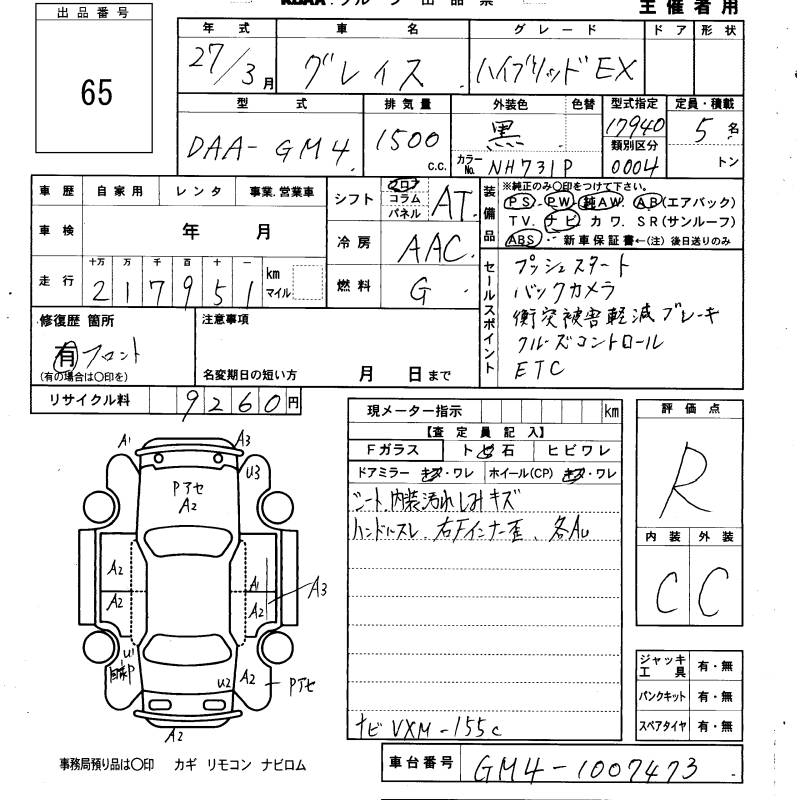 出品番号
65
主催者用
年式 車名 グレード ドア 形状
27/3月 グレイス ハイブリッドEX
型式 排気量 外装色 色替 型式指定 定員・積載
DAA-GM4 1500 c.c. 黒 17940 5名
類別区分
カラーNo. NH731P 0004 トン
車歴 自家用 レンタ 事業.営業車
車検 年 月
走行 十万 万 千 百 十 一
2 1 7 9 5 1 km マイル
シフト フロア コラム パネル AT
冷房 AAC
燃料 G
装備品
※純正のみ〇印をつけて下さい。
PS. PW. 純AW. AB(エアバック)
TV. ナビ カワ. SR(サンルーフ)
ABS 新車保証書←(注) 後日送りのみ
セールスポイント
プッシュスタート
バックカメラ
衝突被害軽減ブレーキ
クルーズコントロール
ETC
修復歴 箇所
有 フロント
(有の場合は〇印を)
注意事項
名変期日の短い方 月 日まで
リサイクル料 9260円
現メーター指示 km
【査定員記入】
Fガラス トビ石 ヒビワレ
ドアミラー キズ・ワレ ホイール(CP) キズ・ワレ
シート.内装汚れしみキズ
ハンドルスレ、右Fインナー歪、各AU
ナビ VXM-155c
評価点
R
内装 外装
C C
ジャッキ工具 有・無
パンクキット 有・無
スペアタイヤ 有・無
A1 A3
U3
Pアセ
A2
A2 A1 A3
A2 A2
U1
U2 A2 Pアセ
A2
事務局預り品は〇印 カギ リモコン ナビロム
車台番号 GM4-1007473